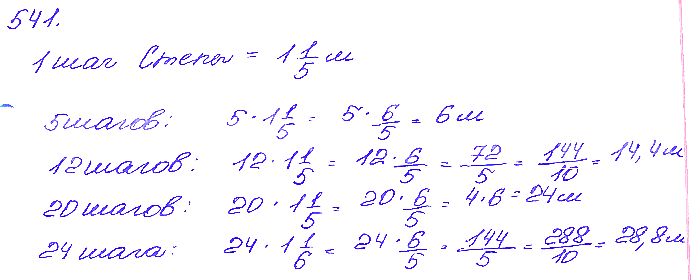 541.
1 шаг Степы = 1 1/5 м
5 шагов: 5 · 1 1/5 = 5 · 6/5 = 6 м
12 шагов: 12 · 1 1/5 = 12 · 6/5 = 72/5 = 144/10 = 14,4 м
20 шагов: 20 · 1 1/5 = 20 · 6/5 = 4 · 6 = 24 м
24 шага: 24 · 1 1/6 = 24 · 6/5 = 144/5 = 288/10 = 28,8 м